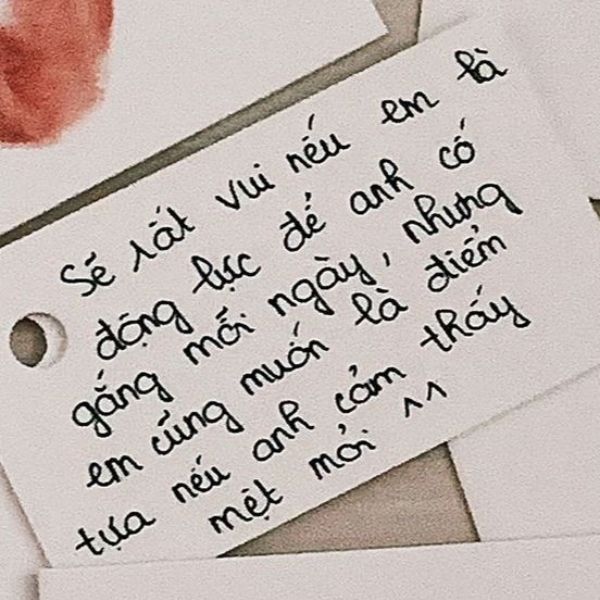 Sẽ rất vui nếu em là
động lực để anh cố
gắng mỗi ngày, nhưng
em cũng muốn là điểm
tựa nếu anh cảm thấy
mệt mỏi ^^